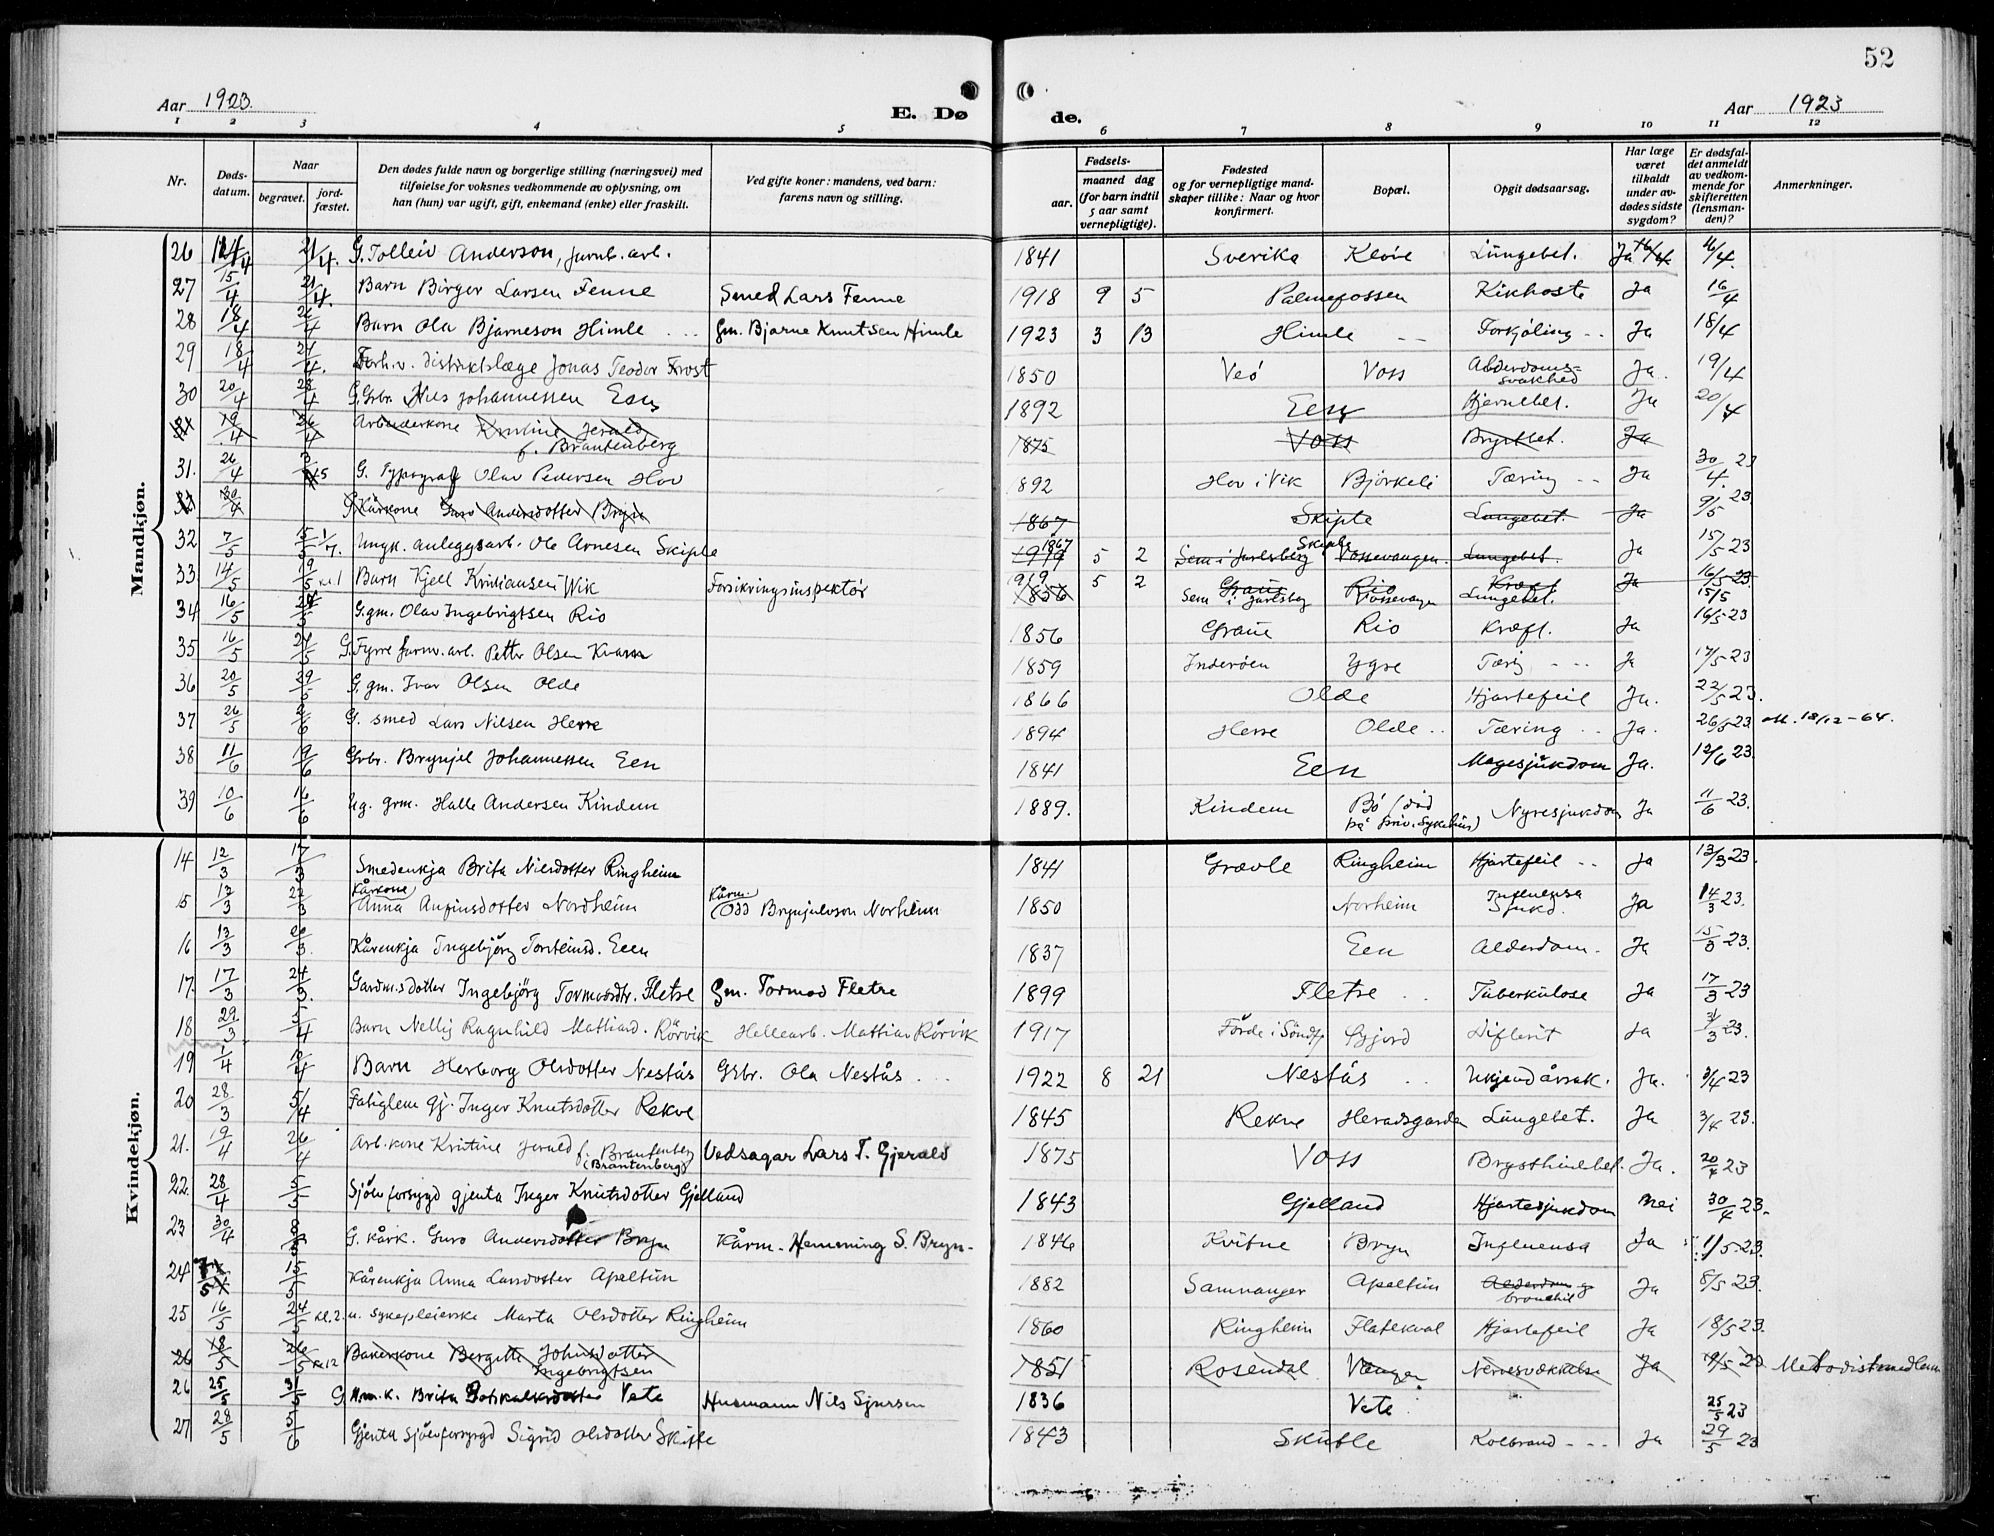 52
Aar 1923.
E. Dø
de.
Aar 1923
1 2 3 4 5 6 7 8 9 10 11 12
Nr.
Døds-
datum.
Naar
begravet.
jord-
fæstet.
Den dødes fulde navn og borgerlige stilling (næringsvei) med
tilføielse for voksnes vedkommende av oplysning, om
han (hun) var ugift, gift, enkemand (enke) eller fraskilt.
Ved gifte koner: mandens, ved barn:
farens navn og stilling.
Fødsels-
aar. maaned dag
(for barn indtil
5 aar samt
vernepligtige).
Fødested
og for vernepligtige mand-
skaper tillike: Naar og hvor
konfirmert.
Bopæl.
Opgit dødsaarsag.
Har læge
været
tilkaldt
under av-
dødes sidste
sygdom?
Er dødsfal-
det anmeldt
av vedkom-
mende for
skifteretten
(lensman-
den)?
Anmerkninger.
Mandkjøn.
26 21/4 G. Tolleiv Anderson, jarnb. arb. 1841 Sverike Kløve Lungebet. Ja
27 15/4 21/4. Barn Birger Larsen Fenne Smed Lars Fenne 1918 9 5 Palmefossen Kikhoste Ja 16/4
28 18/4 Barn Ola Bjarneson Himle Gm. Bjarne Knutsen Himle 1923 3 13 Himle Forkjøling Ja 18/4
29 18/4 21/4. Forh.v. distriktslæge Jonas Teodor Frost 1850 Veö Voss Alderdoms-
svakhed Ja. 19/4
30 20/4 28/4 G. Grbr. Nils Johannessen Een 1892 Een Hjernebet. Ja 20/4
19/4 26/4 Arbeiderkone Kristine Jerald
f. Brantenberg 1875 Voss Brysthbet. Ja
31. 26/4 G. Typograf Olav Pedersen Hov 1892 Hov i Vik Björkeli Tæring Ja 30/4 23
30/4 G. Kårkone Guro Andersdotter Bryn 1867 Skiple Lungebet. Ja 9/5 23
32 7/5 15/5 1/7. Ungk. anleggsarb. Ole Arnesen Skiple 1919 1867 5 2 Sem i Jarlsberg Skiple Vossevangen Lungebet. Ja 15/5 23
33 14/5 19/5 kl. 1 Barn Kjell Kristiansen Wik Forsikringsinspektör 1919 1856 5 2 Graue Sem i Jarlsberg Rio Vossevangen Kreft Lungebet. Ja 16/5 23 15/5
34 16/5 G. gm. Olav Ingebrigtsen Rio 1856 Graue Rio Kreft. Ja 16/5 23
35 16/5 21/5 G. Fyrre jarnv. arb. Petter Olsen Kvam 1859 Inderöen Ygre Tæring Ja 17/5 23
36 20/5 29/5 G. gm. Ivar Olsen Olde 1866 Olde Hjartefeil Ja. 22/5 23.
37 26/5 2/6 G. smed Lars Nilsen Herre 1894 Herre Olde Tæring Ja. 26/5 23 18/12-64.
38 11/6 19/6 Grbr. Brynjel Johannessen Een 1841 Een Magesjukdom Ja. 12/6 23.
39 10/6 16/6 Ug. grm. Halle Andersen Kindem 1889. Kindem Bö (död
på priv. Sykehus) Nyresjukdom Ja 11/6 23.
Kvindekjøn.
14 12/3 17/3 Smedenkja Brita Nilsdotter Ringheim 1841 Grovle Ringheim Hjartefeil Ja 13/3 23.
15 13/3 22/3 Kårkone
Anna Anfinsdotter Nordheim Kårm.
Odd Brynjulvson Norheim 1850 Norheim Influensa
Sjukd. Ja 14/3 23.
16 13/3 20/3. Kårenkja Ingebjörg Torsteinsd. Een 1837 Een Alderdom. Ja 15/3 23.
17 17/3 24/3. Gardm.sdotter Ingebjörg Tormodsdtr. Fletre Gm. Tormod Fletre 1899 Fletre Tuberkulose Ja 17/3 23
18 29/3 5/4 Barn Nelly Ragnhild Mattiasd. Rörvik Hellearb. Mattias Rörvik 1917 Förde i Söndfj. Gjerd Difterit Ja 31/3 23.
19 1/4 Barn Herborg Olsdotter Nestås Grbr. Ola Nestås 1922 8 21 Nestås Ukjend årsak. Ja. 3/4 23
20 28/3 5/4 Fatiglem gj. Inger Knutsdotter Rekve 1845 Rekve Heradsgarden Lungebet. Ja 3/4 23.
21. 19/4 26/4 Arb. kone Kristine Jerald f. Brantenberg
(Brantenberg) Vedsagar Lars T. Gjerald 1875 Voss Brysthinebet. Ja. 20/4 23
22. 28/4 5/5 Sjölvforsygd gjenta Inger Knutsdotter Gjelland 1843 Gjelland Hjartesjukdom Nei 30/4 23.
23 30/4 8/5 G. kårk. Guro Andersdotter Bryn Kårm. Hemming S. Bryn. 1846 Kvitne Bryn Influensa Ja 1/5 23.
24 7/5 15/5 Kårenkja Anna Larsdotter Apeltun 1882 Samnanger Apeltun Alderdom og
bronchit Ja 8/5 23.
25 16/5 24/5 kl. 2. u. sykepleierske Marta Olsdotter Ringheim 1860 Ringheim Flatekval Hjartefeil Ja 18/5 23.
26 18/5 26/5 kl 12 Bakerkone Bergitte Johnsdotter
Ingebrigtsen 1851 Rosendal Vangen Nervesvækkelse Ja 19/5 23 Metodistmedlem
26 25/5 31/5 G. Hm. k. Brita Botkalksdotter Vete Husmann Nils Sjursen 1836 Vete 25/5 23
27 28/5 5/6 Gjenta sjölvforsyrgd Sigrid Olsdotter Skiple 1843 Skutle Kolbrand Ja 29/5 23